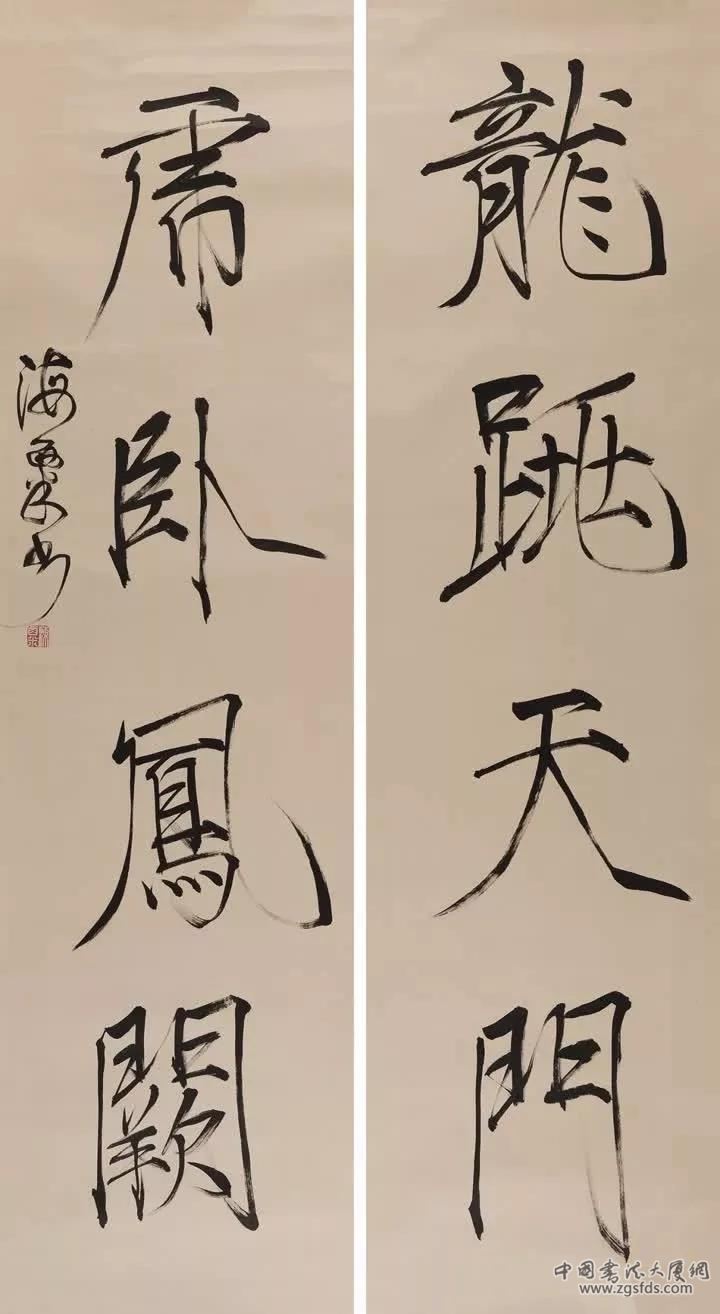 龍跳天門
虎卧鳳闕
海粟书
中國書法大厦網
www.zgsfds.com